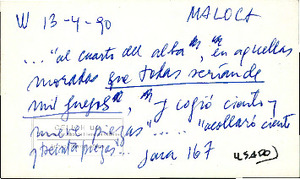 W 13-4-90 MALOCA
..."al cuarto del alba", "en aquellas
moradas que todas serían de
mil fuegos", "y cogió ciento y
nueve piezas".... "acollaró ciento
y treinta piezas"...
Jara 167 (USADO)